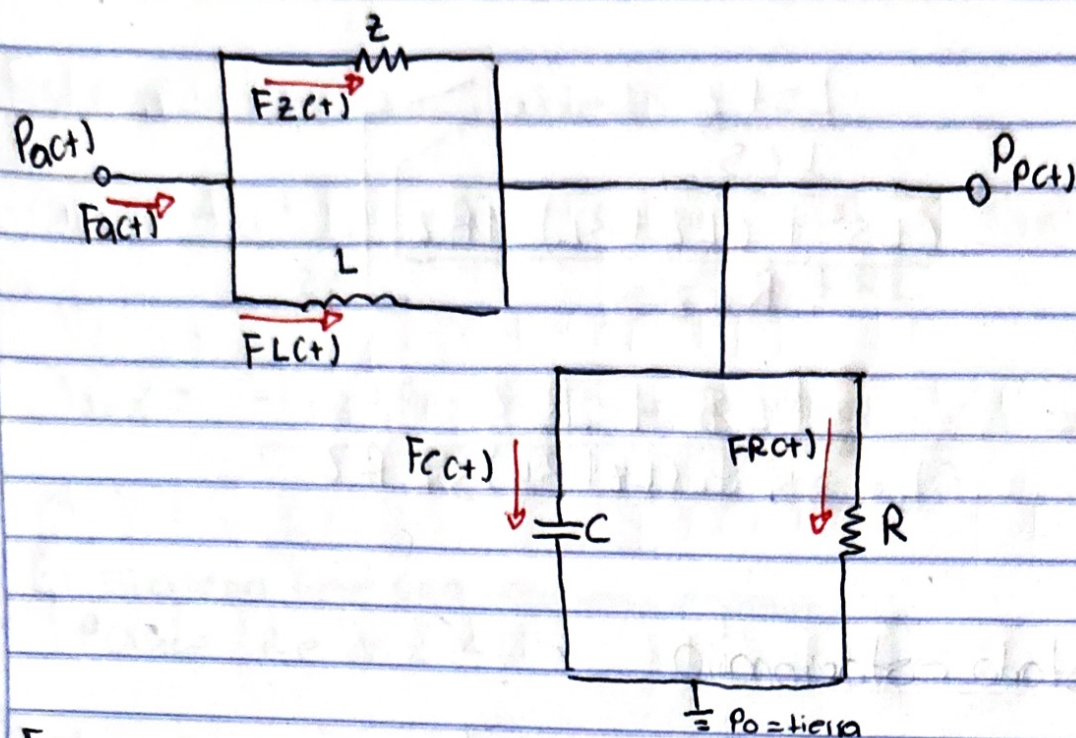 Z
FZ(t)
Pa(t)
Fa(t)
PP(t)
L
FL(t)
FC(t)
FR(t)
C
R
Po = tierra